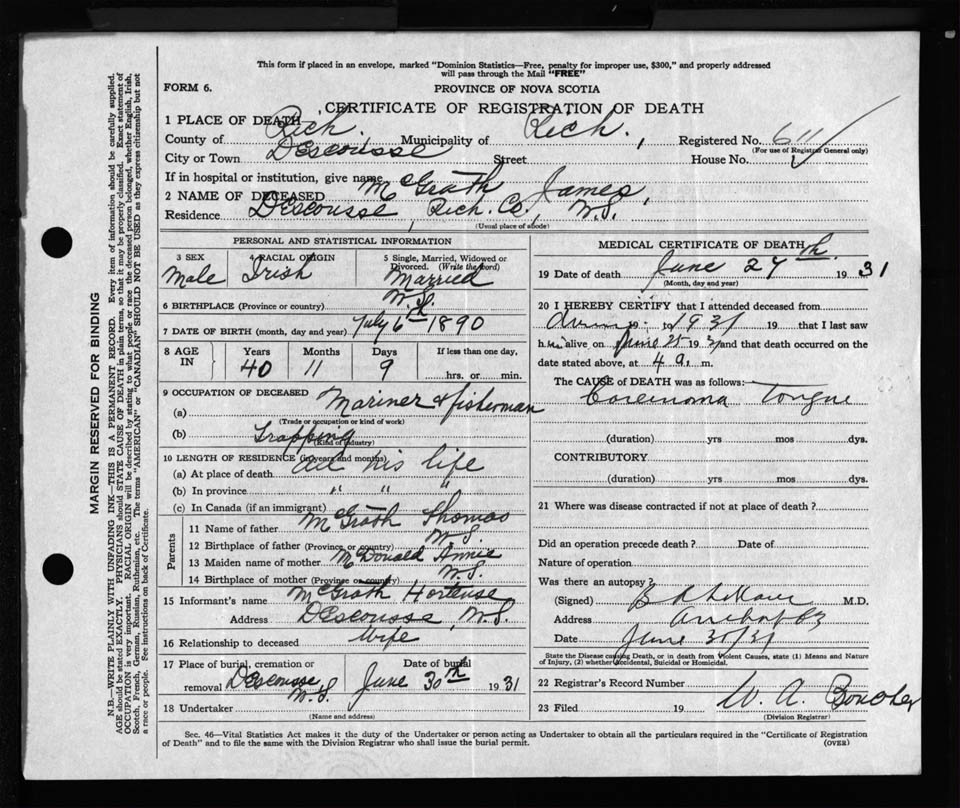 This form if placed in an envelope, marked "Dominion Statistics—Free, penalty for improper use, $300," and properly addressed
will pass through the Mail "FREE"
FORM 6.
PROVINCE OF NOVA SCOTIA
CERTIFICATE OF REGISTRATION OF DEATH
1 PLACE OF DEATH
County of Rich. Municipality of Rich. , Registered No. 611
(For use of Registrar General only)
City or Town Descousse Street House No.
If in hospital or institution, give name
2 NAME OF DECEASED McGrath James,
Residence Descousse, Rich. Co, N.S.
(Usual place of abode)
PERSONAL AND STATISTICAL INFORMATION
3 SEX Male
4 RACIAL ORIGIN Irish
5 Single, Married, Widowed or Divorced. (Write the word) Married
6 BIRTHPLACE (Province or country) N.S.
7 DATE OF BIRTH (month, day and year) July 6th 1890
8 AGE IN Years 40 Months 11 Days 9 If less than one day, hrs. or min.
9 OCCUPATION OF DECEASED
(a) Mariner & fisherman
(Trade or occupation or kind of work)
(b) Trapping
(Kind of industry)
10 LENGTH OF RESIDENCE (in years and months)
(a) At place of death all his life
(b) In province " " "
(c) In Canada (if an immigrant)
Parents
11 Name of father McGrath Thomas
12 Birthplace of father (Province or country) N.S.
13 Maiden name of mother McDonald Annie
14 Birthplace of mother (Province or country) N.S.
15 Informant's name McGrath Hortense
Address Descousse, N.S.
16 Relationship to deceased Wife
17 Place of burial, cremation or removal Descousse N.S. Date of burial June 30th 1931
18 Undertaker
(Name and address)
MEDICAL CERTIFICATE OF DEATH
19 Date of death June 27th. 1931
(Month, day and year)
20 I HEREBY CERTIFY that I attended deceased from
during 19 to 1931 19 that I last saw
him alive on June 25 1931 and that death occurred on the
date stated above, at 4 a. m.
The CAUSE of DEATH was as follows:
Carcinoma Tongue
(duration) yrs mos dys.
CONTRIBUTORY
(duration) yrs mos dys.
21 Where was disease contracted if not at place of death?
Did an operation precede death? Date of
Nature of operation
Was there an autopsy?
(Signed) M.D.
Address
Date June 30/31
State the Disease causing Death, or in death from Violent Causes, state (1) Means and Nature
of Injury, (2) whether Accidental, Suicidal or Homicidal.
22 Registrar's Record Number
23 Filed 19 W. A. Boucher
(Division Registrar)
Sec. 46—Vital Statistics Act makes it the duty of the Undertaker or person acting as Undertaker to obtain all the particulars required in the "Certificate of Registration
of Death" and to file the same with the Division Registrar who shall issue the burial permit. (OVER)
MARGIN RESERVED FOR BINDING
N.B.—WRITE PLAINLY WITH UNFADING INK—THIS IS A PERMANENT RECORD. Every item of information should be carefully supplied.
AGE should be stated EXACTLY. PHYSICIANS should STATE CAUSE OF DEATH in plain terms, so that it may be properly classified. Exact statement of
OCCUPATION is very important. RACIAL ORIGIN will be described by stating to what people or race the deceased person belonged, whether English, Irish,
Scotch, French, German, Russian, Ruthenian, etc. The terms "AMERICAN" or "CANADIAN" SHOULD NOT BE USED as they express citizenship but not
a race or people. See instructions on back of Certificate.